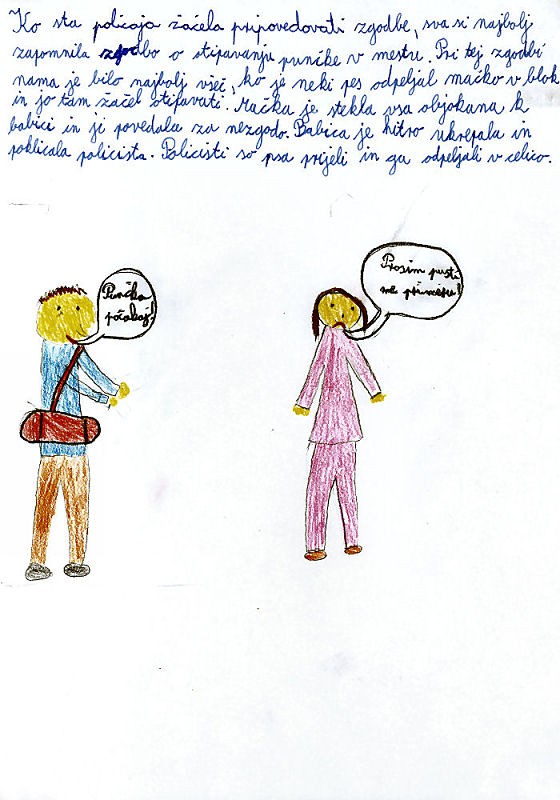 Ko sta policaja začela pripovedovati zgodbe, sva si najbolj
zapomnila zgodbo o stipavanju punčke v mestu. Pri tej zgodbi
nama je bilo najbolj všeč, ko je neki pes odpeljal mačko v blok
in jo tam začel stipavati. Mačka je stekla vsa objokana k
babici in ji povedala za nezgodo. Babica je hitro ukrepala in
poklicala policista. Policisti so psa prijeli in ga odpeljali v celico.
Punčka
počakaj!
Prosim pusti
me primeru!